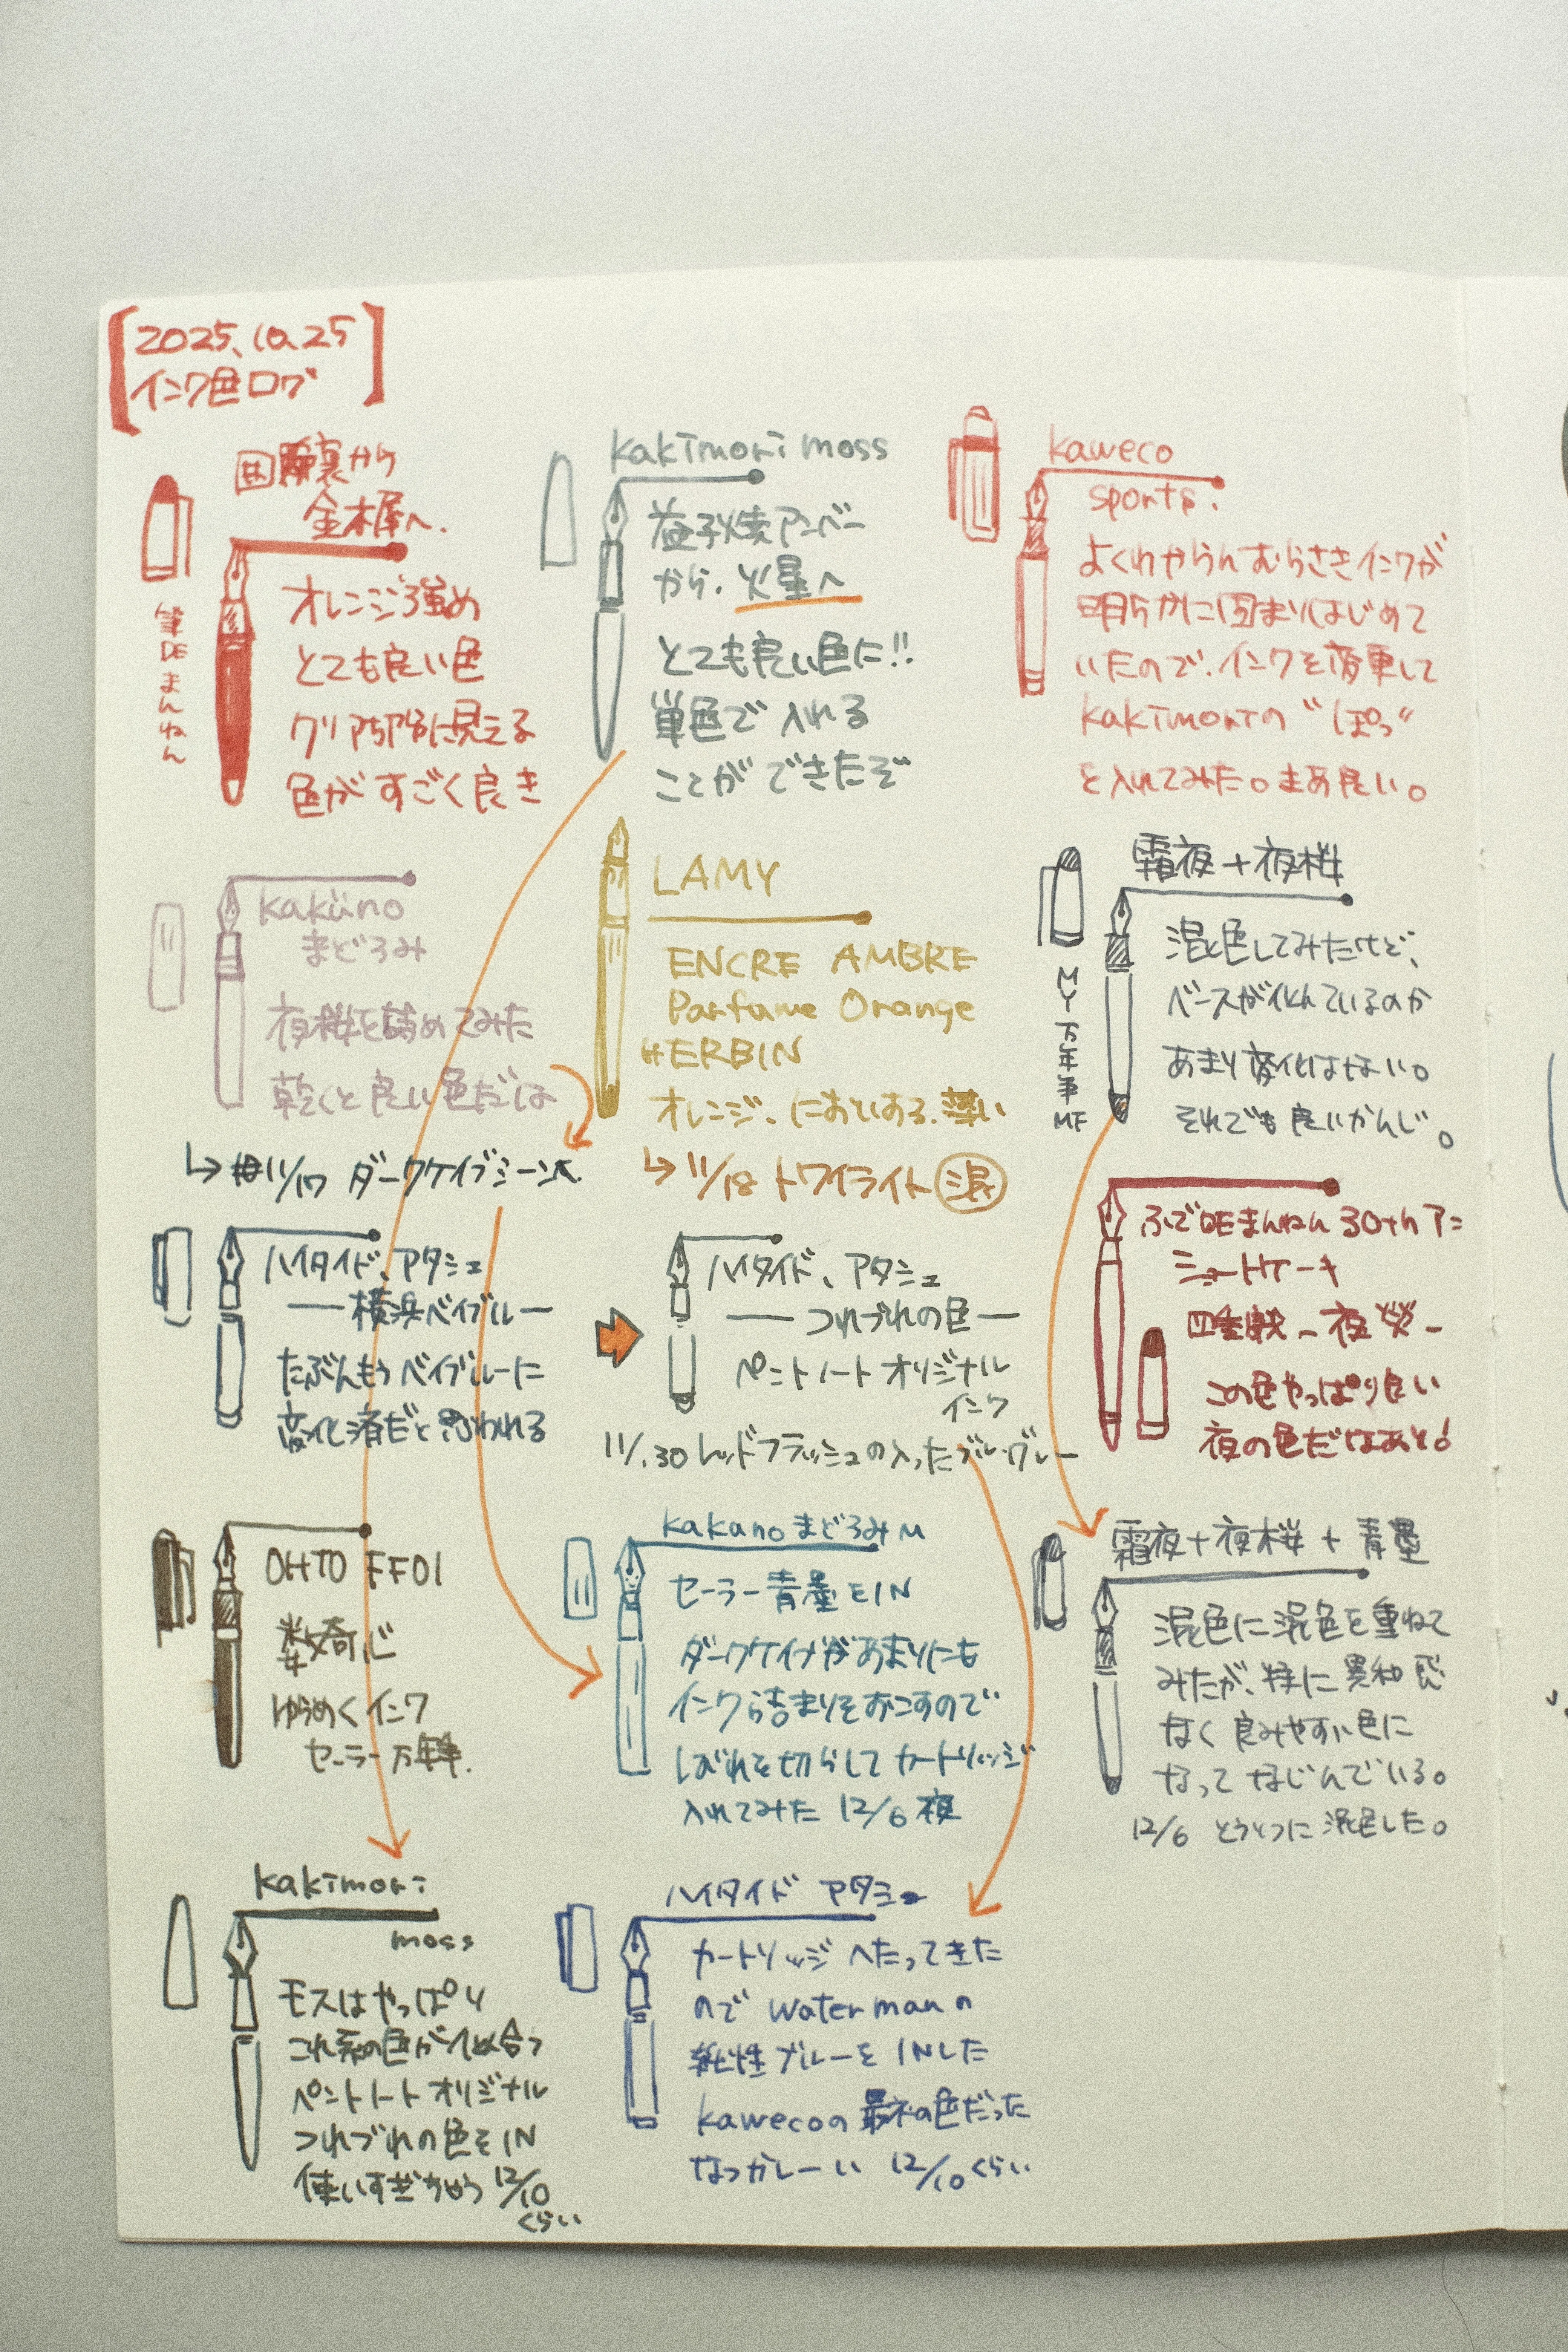 2025.10.25
インク色ログ
囲炉裏から
金木犀へ.
筆DEまんねん
オレンジ強め
とても良い色
クリア部分に見える
色がすごく良き
kakimori moss
益子焼アンバー
から、火星へ
とても良い色に!!
単色で入れる
ことができたぞ
kaweco
sports.
よくわからんむらさきインクが
明らかに固まりはじめて
いたので、インクを変更して
kakimoriの“ぽっ”
を入れてみた。まあ良い。
kaküno
まどろみ
夜桜を詰めてみた
乾くと良い色だな
↳ 11/17 ダークケイブミーン
LAMY
ENCRE AMBRE
Parfume Orange
HERBIN
オレンジ、においある、薄い
↳ 11/18 トワイライト 混
霜夜+夜桜
MY万年筆MF
混色してみたけど、
ベースが似ているのか
あまり変化はない。
それでも良いかんじ。
ハイタイド、アタシェ
—横浜ベイブルー
たぶんもうベイブルーに
変化済だと思われる
ハイタイド、アタシェ
— つれづれの色 —
ペントノート オリジナル
インク
11.30 レッドフラッシュの入ったブルーグレー
ふでDEまんねん 30th アニ
ショートケーキ
四季織 - 夜焚 -
この色やっぱり良い
夜の色だなあと!
OHTO FF01
数奇心
ゆらめくインク
セーラー万年筆.
kakuno まどろみ M
セーラー青墨をIN
ダークケイブがあまりにも
インク詰まりをおこすので
しびれを切らしてカートリッジ
入れてみた 12/6 夜
霜夜+夜桜+青墨
混色に混色を重ねて
みたが、特に異和感
なく良みやすい色に
なってなじんでいる。
12/6 とうとつに混色した。
kakimori
moss
モスはやっぱり
これ系の色が似合う
ペントノート オリジナル
つれづれの色をIN
使いすぎちゃう 12/10
くらい
ハイタイド アタシェ
カートリッジへたってきた
ので watermanの
純性ブルーを INした
kawecoの最初の色だった
なつかしーい 12/10くらい